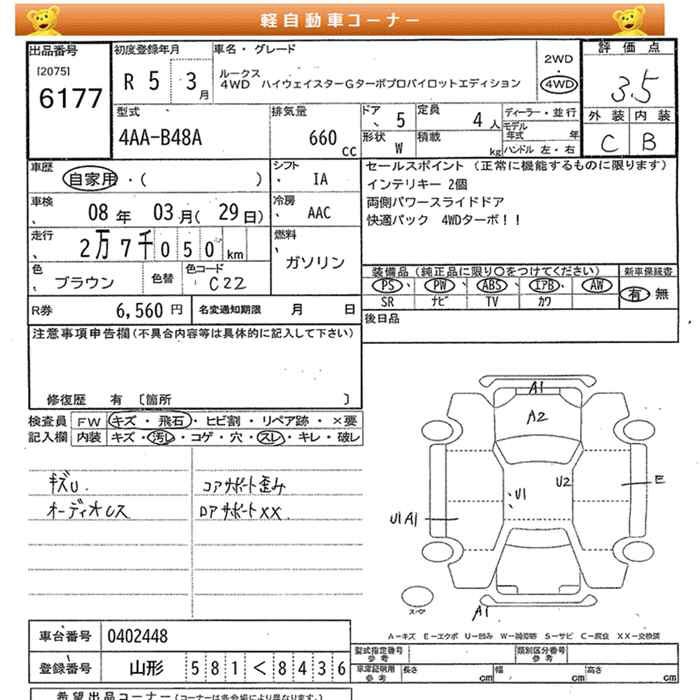 軽自動車コーナー
出品番号
[2075]
6177
初度登録年月
R 5 3月
車名・グレード
ルークス
4WD ハイウェイスターGターボプロパイロットエディション
2WD
4WD
評価点
3.5
外装 内装
C B
型式
4AA-B48A
排気量
660 cc
ドア
5
定員
4人
形状
W
積載
kg
ディーラー・並行
モデル年式 年
ハンドル 左・右
車歴
自家用・( )
シフト
IA
車検
08年 03月(29日)
冷房
AAC
走行
2万7千050km
燃料
ガソリン
色
ブラウン
色替
色コード
C22
R券
6,560円
名変通知期限 月 日
セールスポイント (正常に機能するものに限ります)
インテリキー 2個
両側パワースライドドア
快適パック 4WDターボ!!
装備品(純正品に限り○をつけてください)
新車保証書
PS PW ABS エアB AW
有・無
SR ナビ TV カワ
後日品
注意事項申告欄(不具合内容等は具体的に記入して下さい)
修復歴 有 〔箇所 〕
検査員記入欄
FW キズ・飛石・ヒビ割・リペア跡・×要
内装 キズ・汚レ・コゲ・穴・スレ・キレ・破レ
キズU.
オーディオレス
コアサポート歪み
ロアサポートXX.
A1
A2
U1
U2
E
U1A1
A1
スペア
A-キズ E-エクボ U-凹み W-補修跡 S-サビ C-腐食 XX-交換済
車台番号 0402448
登録番号 山形 581 く 8436
型式指定番号
参考
類別区分番号
参考
車庫証明用
参考
長さ cm 幅 cm 高さ cm
希望出品コーナー(コーナーは各会場により異なります。)